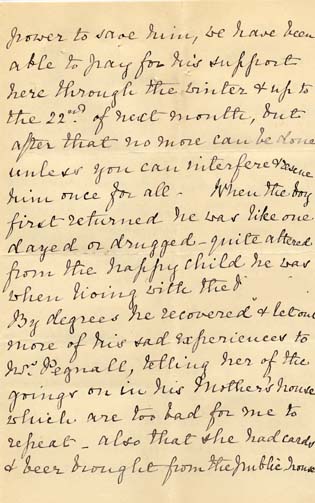 power to save him, we have been
able to pay for his support
here through the winter & up to
the 22nd of next month, but
after that no more can be done
unless you can interfere & rescue
him once for all - When the boy
first returned he was like one
dazed or drugged - quite altered
from the happy child he was
when living with the
By degrees he recovered & let out
more of his sad experiences to
Mrs Pegnall, telling her of the
goings on in his Mother's house
which are too bad for me to
repeat - also that she had cards
& beer brought from the public house